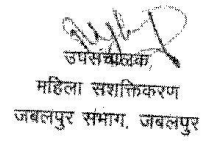 उपसंचालक,
महिला सशक्तिकरण
जबलपुर संभाग, जबलपुर